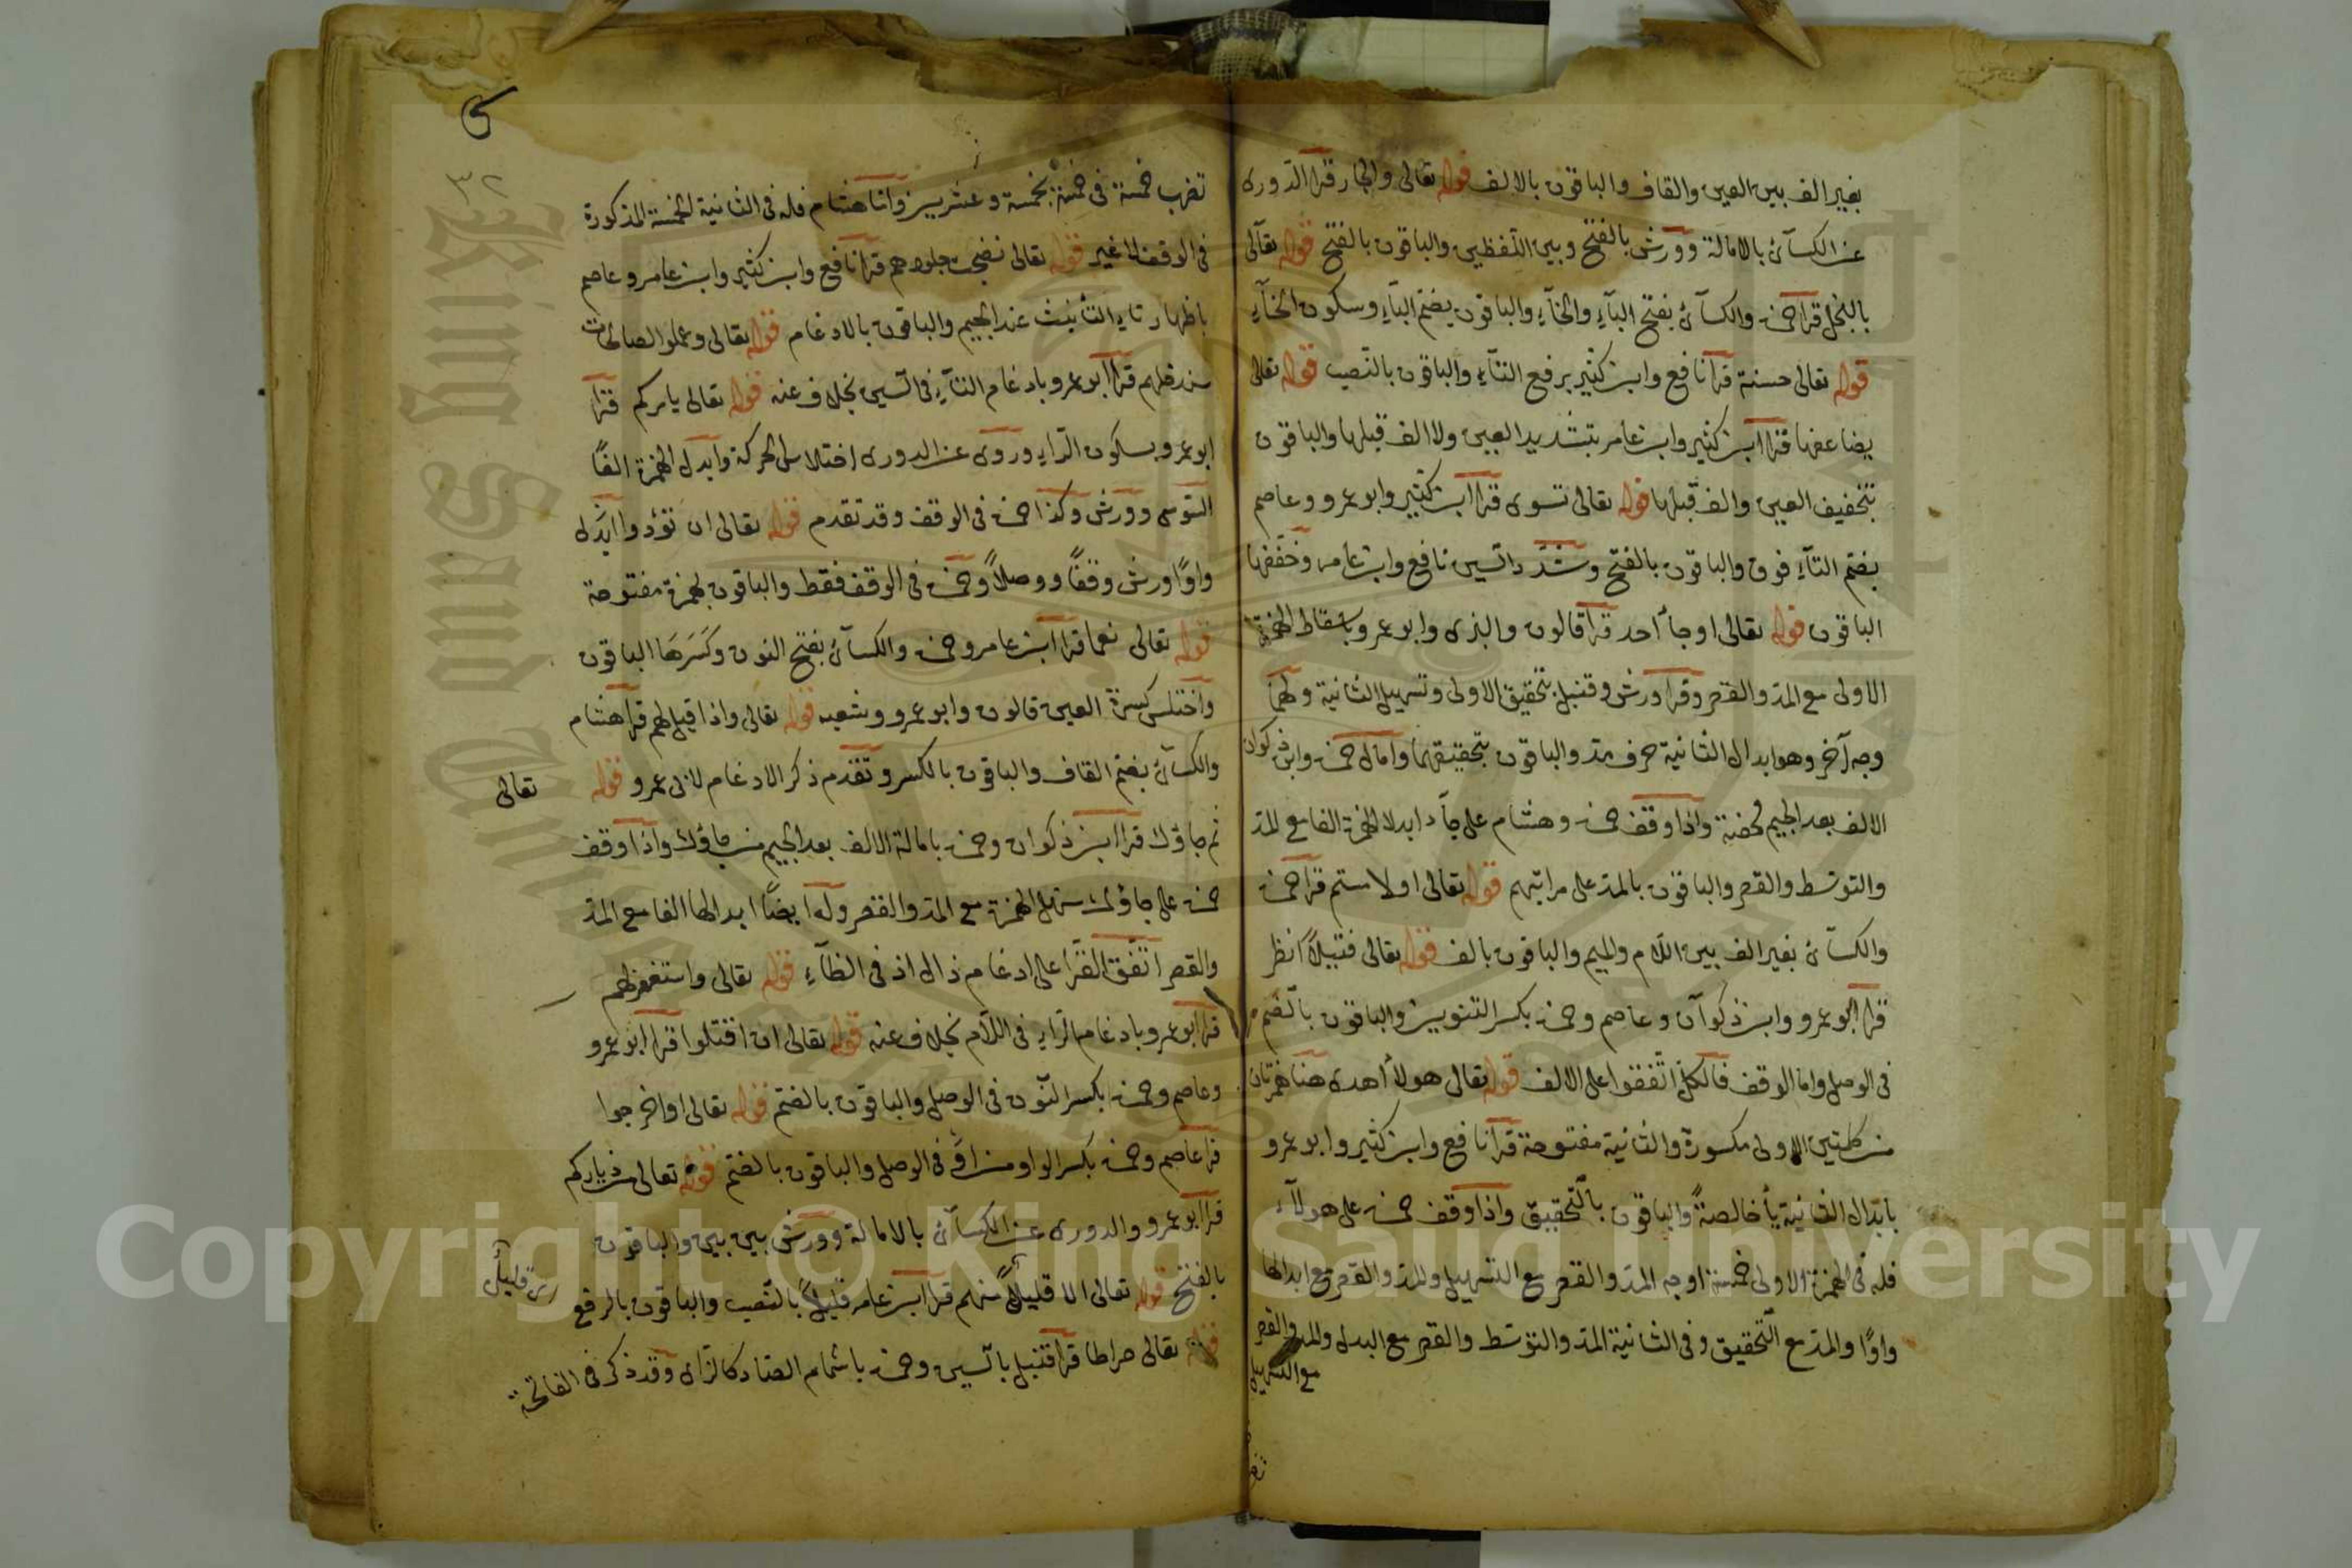 بغير الف بين العين والقاف والباقون بالالف قوله تعالى والجار قرا الدورى
عن الكسآئ بالامالة وورش بالفتح وبين اللفظين والباقون بالفتح قوله تعالى
بالبخل قرا حمزة والكسآئ بفتح البآء والخآء والباقون بضم البآء وسكون الخآء
قوله تعالى حسنة قرا نافع وابن كثير برفع التآء والباقون بالنصب قوله تعالى
يضاعفها قرا ابن كثير وابن عامر بتشديد العين ولا الف قبلها والباقون
بتخفيف العين والف قبلها قوله تعالى تسوى قرا ابن كثير وابو عمرو وعاصم
بضم التآء فوق والباقون بالفتح وشدد السين نافع وابن عامر وخففها
الباقون قوله تعالى او جآ أحد قرا قالون والبزى وابو عمرو باسقاط الهمزة
الاولى مع المد والقصر وقرا ورش وقنبل بتحقيق الاولى وتسهيل الثانية ولهما
وجه آخر وهو ابدال الثانية حرف مد والباقون بتحقيقهما وامال حمزة وابن ذكوان
الالف بعد الجيم محضة واذا وقف حمزة وهشام على جآء ابدلا الهمزة الفا مع المد
والتوسط والقصر والباقون بالمد على مراتبهم قوله تعالى او لامستم قرا حمزة
والكسآئ بغير الف بين اللام والميم والباقون بالف قوله تعالى فتيلاً انظر
قرا ابو عمرو وابن ذكوان وعاصم وحمزة بكسر التنوين والباقون بالضم
فى الوصل واما الوقف فالكل اتفقوا على الالف قوله تعالى هولأ اهدى هنا همزتان
من كلمتين الاولى مكسورة والثانية مفتوحة قرا نافع وابن كثير وابو عمرو
بابدال الثانية يأ خالصةً والباقون بالتحقيق واذا وقف حمزة على هولآء
فله فى الهمزة الاولى خمسة اوجه المد والقصر مع التسهيل والمد والقصر مع ابدالها
واوًا والمد مع التحقيق وفى الثانية المد والتوسط والقصر مع البدل والمد والقصر
مع التسهيل
٣٢
تضرب خمسة فى خمسة بخمسة وعشرين واما هشام فله فى الثانية الخمسة المذكورة
فى الوقف لا غير قوله تعالى نضجت جلودهم قرا نافع وابن كثير وابن عامر وعاصم
باظهار تاء التأنيث عند الجيم والباقون بالادغام قوله تعالى وعملوا الصالحات
سندخلهم قرا ابو عمرو بادغام التآء فى السين بخلاف عنه قوله تعالى يامركم قرا
ابو عمرو بسكون الراء وروى عن الدورى اختلاس الحركة وابدل الهمزة الفًا
السوسى وورش وكذا حمزة فى الوقف وقد تقدم قوله تعالى ان تؤدوا ابدل
واوًا ورش وقفًا ووصلاً وحمزة فى الوقف فقط والباقون بهمزة مفتوحة
قوله تعالى نعما قرا ابن عامر وحمزة والكسآئ بفتح النون وكسرها الباقون
واختلس كسرة العين قالون وابو عمرو وشعبه قوله تعالى واذا قيل لهم قرا هشام
والكسآئ بضم القاف والباقون بالكسر وتقدم ذكر الادغام لابى عمرو قوله تعالى
ثم جاؤك قرا ابن ذكوان وحمزة بامالة الالف بعد الجيم من جاؤك واذا وقف
حمزة على جاؤك سهل الهمزة مع المد والقصر وله ايضًا ابدالها الفا مع المد
والقصر اتفق القرا على ادغام ذال اذ فى الظآء قوله تعالى واستغفر لهم
قرا ابو عمرو بادغام الراء فى اللام بخلاف عنه قوله تعالى ان اقتلوا قرا ابو عمرو
وعاصم وحمزة بكسر النون فى الوصل والباقون بالضم قوله تعالى او اخرجوا
قرا عاصم وحمزة بكسر الواو من او فى الوصل والباقون بالضم قوله تعالى من دياركم
قرا ابو عمرو والدورى عن الكسآئ بالامالة وورش بين بين والباقون
بالفتح قوله تعالى الا قليلاً منهم قرا ابن عامر قليلاً بالنصب والباقون بالرفع
قوله تعالى صراطا قرا قنبل بالسين وحمزة باشمام الصاد كالزاى وقد ذكر فى الفاتحة
Copyright © King Saud University
King Saud University